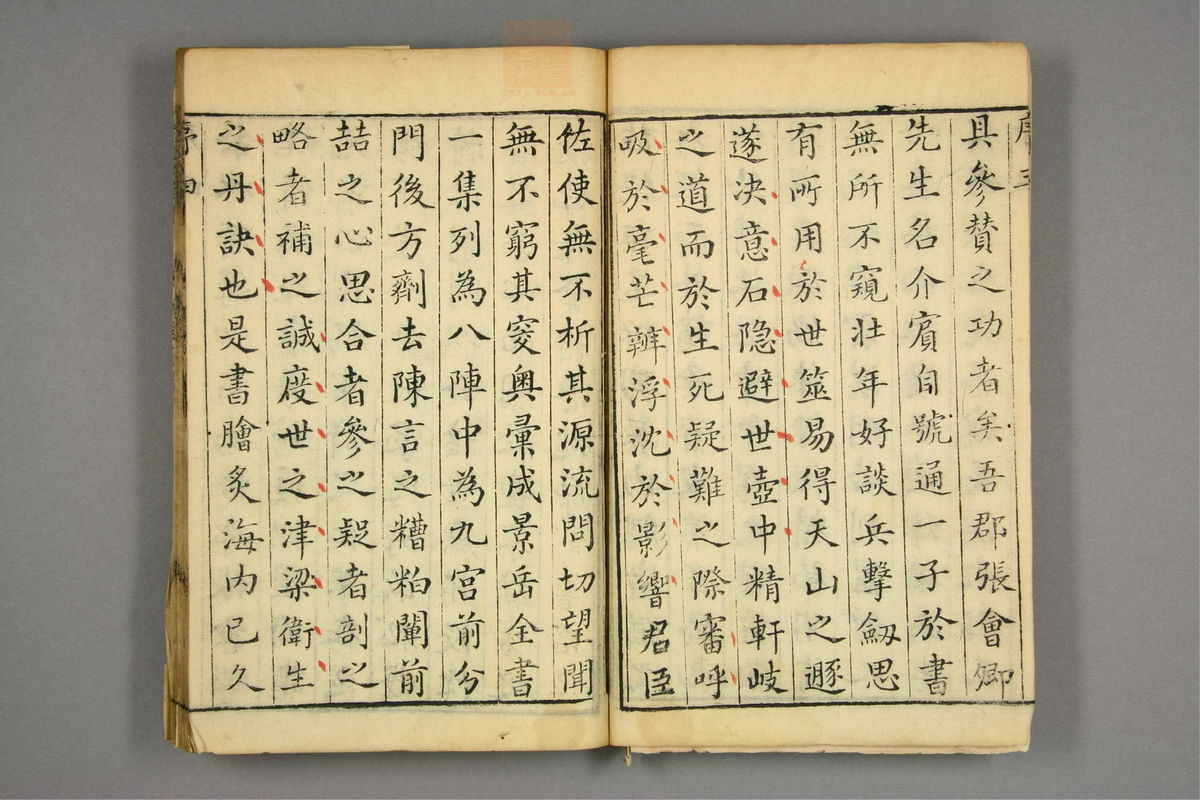 序三
具參贊之功者矣吾郡張會卿
先生名介賔自號通一子於書
無所不窺壯年好談兵擊劒思
有所用於世筮易得天山之遯
遂决意石隐避世壺中精軒岐
之道而於生死疑難之際審呼
吸於毫芒辨浮沈於影響君臣
佐使無不析其源流問切望聞
無不窮其窔奥彚成景岳全書
一集列為八陣中為九宫前分
門後方劑去陳言之糟粕闡前
喆之心思合者參之疑者剖之
略者補之誠度世之津梁衛生
之丹訣也是書膾炙海内已久
序四